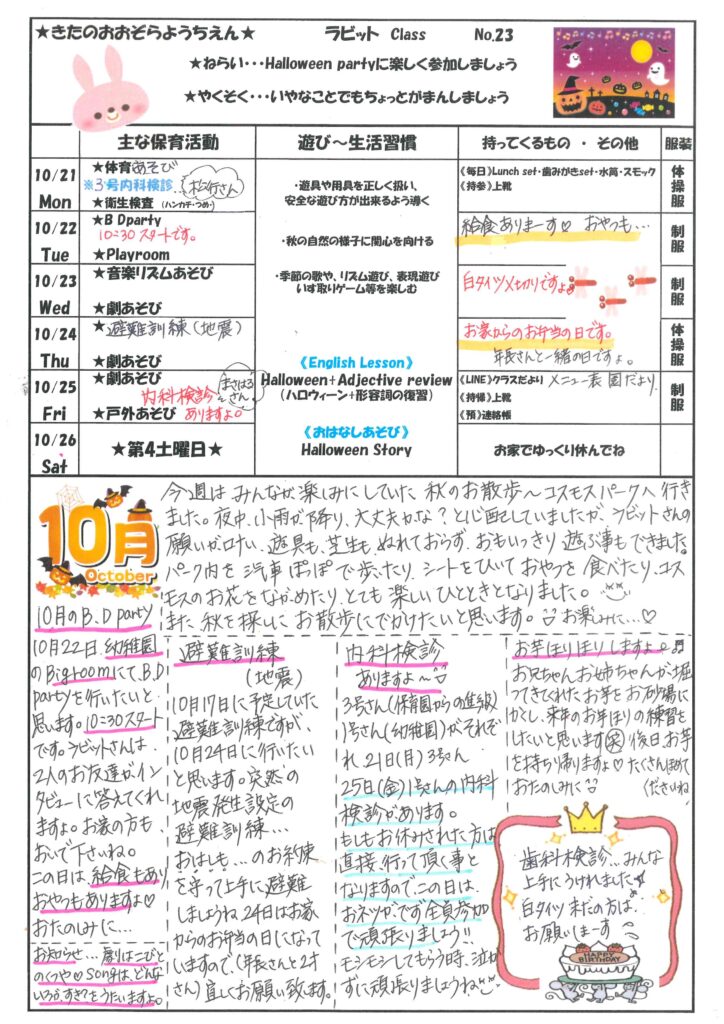 ★きたのおおぞらようちえん★ ラビット Class No.23
★ねらい・・・Halloween partyに楽しく参加しましょう
★やくそく・・・いやなことでもちょっとがまんしましょう
主な保育活動 遊び～生活習慣 持ってくるもの ・ その他 服装
10/21 Mon
★体育あそび
※3号内科検診
松行さん
★衛生検査 (ハンカチ・つめ)
・遊具や用具を正しく扱い、
安全な遊び方が出来るよう導く
《毎日》Lunch set・歯みがきset・水筒・スモック
《持参》上靴
体操服
10/22 Tue
★B Dparty
10:30 スタートです。
★Playroom
・秋の自然の様子に関心を向ける
給食ありまーす♡ おやつも...
制服
10/23 Wed
★音楽リズムあそび
★劇あそび
・季節の歌や、リズム遊び、表現遊び
いす取りゲーム等を楽しむ
白タイツ〆切りですよ。
制服
10/24 Thu
★避難訓練(地震)
★劇あそび
《English Lesson》
お家からのお弁当の日です。
年長さんと一緒の日ですよ。
体操服
10/25 Fri
★劇あそび
内科検診
まさはるさん
★戸外あそび ありますよ。
Halloween+Adjective review
(ハロウィーン+形容詞の復習)
《LINE》クラスだより メニュー表 園だより
《持帰》上靴
《預》連絡帳
制服
10/26 Sat
★第4土曜日★
《おはなしあそび》
Halloween Story
お家でゆっくり休んでね
10月
October
今週はみんなが楽しみにしていた秋のお散歩～コスモスパークへ行き
ました。夜中、小雨が降り、大丈夫かな?と心配していましたが、ラビットさんの
願いが叶い、遊具も、芝生も、ぬれておらず、おもいっきり遊ぶ事もできました。
パーク内を汽車ぽっぽで歩いたり、シートをひいておやつを食べたり、コス
モスのお花をながめたり、とても楽しいひとときとなりました。
また、秋を探しにお散歩にでかけたいと思います。お楽しみに...♡
10月のB.D party
10月22日、幼稚園
のBigroomにて、B.D
partyを行いたいと
思います。10:30スタート
です。ラビットさんは、
2人のお友達がイン
タビューに答えてくれ
ますよ。お家の方も、
おいで下さいね。
この日は、給食もあり
おやつもありますよ♡
おたのしみに...
お知らせ... 劇りはこびと
のくつや♡Songは、どんな
いろがすき?をうたいますよ。
避難訓練
(地震)
10月17日に予定していた
避難訓練ですが、
10月24日に行いたい
と思います。突然の
地震発生設定の
避難訓練...
おはしも...のお約束
を守って上手に避難
しましょうね。24日はお家
からのお弁当の日になって
いますので、(年長さんと2才
さん)宜しくお願い致します。
内科検診
ありますよ～
3号さん(保育園からの進級)
1号さん(幼稚園)がそれぞ
れ、21日(月)3号さん
25日(金)1号さんの内科
検診があります。
もしもお休みされた方は
直接、行って頂く事と
なりますので、この日は、
おネツがでず全員参加
で頑張りましょう!!
モシモシしてもらう時、泣か
ずに頑張りましょうね
お芋ほりほりしますよ。♬
お兄ちゃんお姉ちゃんが掘
ってきてくれたお芋をお砂場に
かくし、来年のお芋ほりの練習を
したいと思います(笑)後日、お芋
を持ち帰りますよ♡たくさんほめて
おたのしみに くださいね
歯科検診...みんな
上手にうけれました
白タイツまだの方は、
お願いしまーす
HAPPY
BIRTHDAY